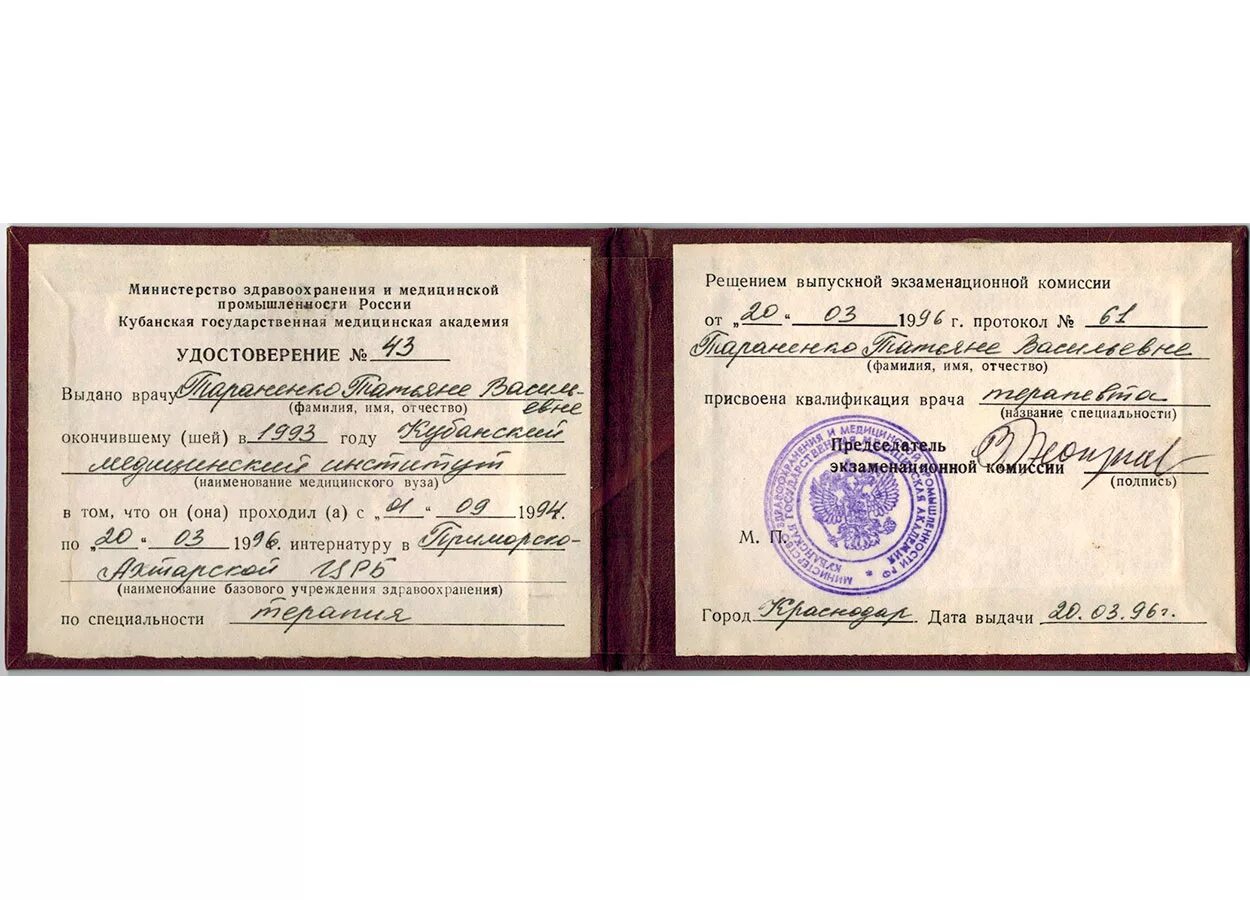 Министерство здравоохранения и медицинской
промышленности России
Кубанская государственная медицинская академия
УДОСТОВЕРЕНИЕ № 43
Выдано врачу Тараненко Татьяне Василь-
(фамилия, имя, отчество) евне
окончившему (шей) в 1993 году Кубанский
медицинский институт
(наименование медицинского вуза)
в том, что он (она) проходил (а) с „01“ 09 1994.
по „20“ 03 1996. интернатуру в Приморско-
Ахтарской ЦРБ
(наименование базового учреждения здравоохранения)
по специальности терапия
Решением выпускной экзаменационной комиссии
от „20“ 03 1996 г. протокол № 61
Тараненко Татьяне Васильевне
(фамилия, имя, отчество)
присвоена квалификация врача терапевта
(название специальности)
Председатель
экзаменационной комиссии
(подпись)
М. П.
МИНИСТЕРСТВО ЗДРАВООХРАНЕНИЯ И МЕДИЦИНСКОЙ ПРОМЫШЛЕННОСТИ РФ
КУБАНСКАЯ ГОСУДАРСТВЕННАЯ МЕДИЦИНСКАЯ АКАДЕМИЯ
Город Краснодар Дата выдачи 20.03.96г.